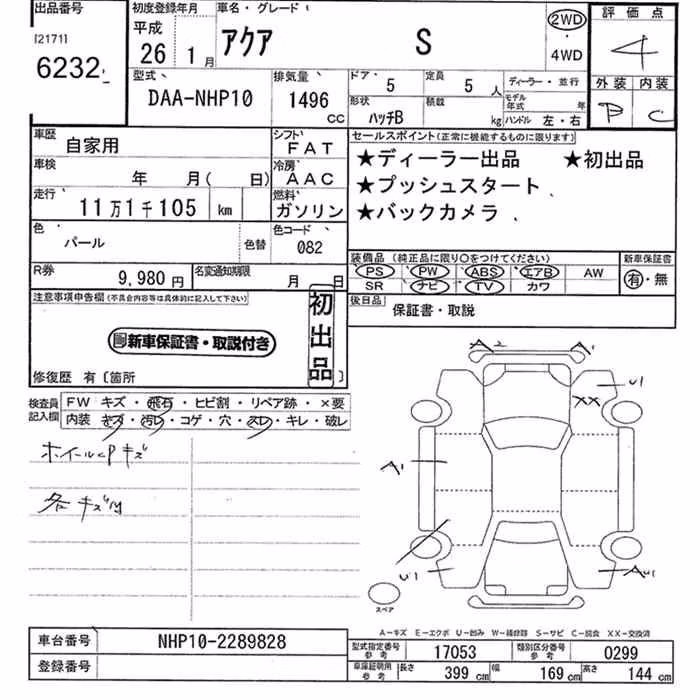 出品番号 初度登録年月 車名・グレード 評価点
[2171] 平成 アクア S 2WD 4
6232 26年 1月 4WD
型式 排気量 ドア 定員 ディーラー・並行 外装 内装
DAA-NHP10 1496 CC 5 5人 モデル年式 年
形状 積載 B C
ハッチB kg ハンドル 左・右
車歴 自家用 シフト FAT セールスポイント(正常に機能するものに限ります)
車検 年 月( 日) 冷房 AAC ★ディーラー出品 ★初出品
走行 11万1千105 km 燃料 ガソリン ★プッシュスタート
★バックカメラ
色 パール 色替 色コード 082
装備品 (純正品に限り○をつけてください) 新車保証書
R券 9,980円 名変通知期限 月 日 PS PW ABS エアB AW 有・無
SR ナビ TV カワ
注意事項申告欄(不具合内容等は具体的に記入して下さい) 初出品 後日品 保証書・取説
新車保証書・取説付き
修復歴 有〔箇所 〕
検査員記入欄 FW キズ・飛石・ヒビ割・リペア跡・×要
内装 キズ・汚レ・コゲ・穴・スレ・キレ・破レ
ホイールcPキズ
各キズ凹
A2 A1
U1
XX
A1
U1
AU1
スペア
A-キズ E-エクボ U-凹み W-補修跡 S-サビ C-腐食 XX-交換済
車台番号 NHP10-2289828 型式指定番号 参考 17053 類別区分番号 参考 0299
登録番号 車庫証明用 参考 長さ 399 cm 幅 169 cm 高さ 144 cm